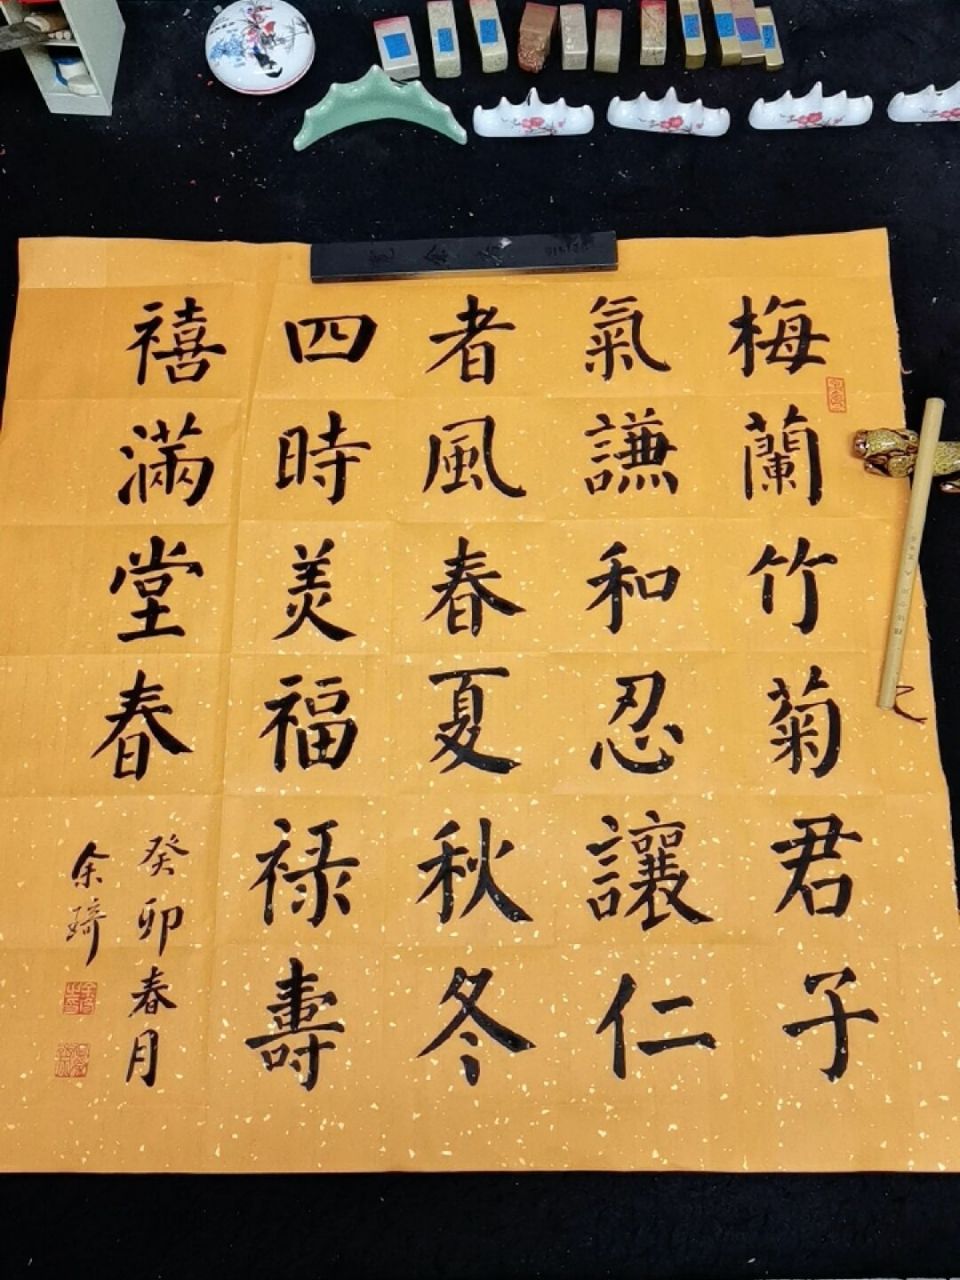 梅蘭竹菊君子
氣謙和忍讓仁
者風春夏秋冬
四時美福禄壽
禧滿堂春
癸卯春月
余琦